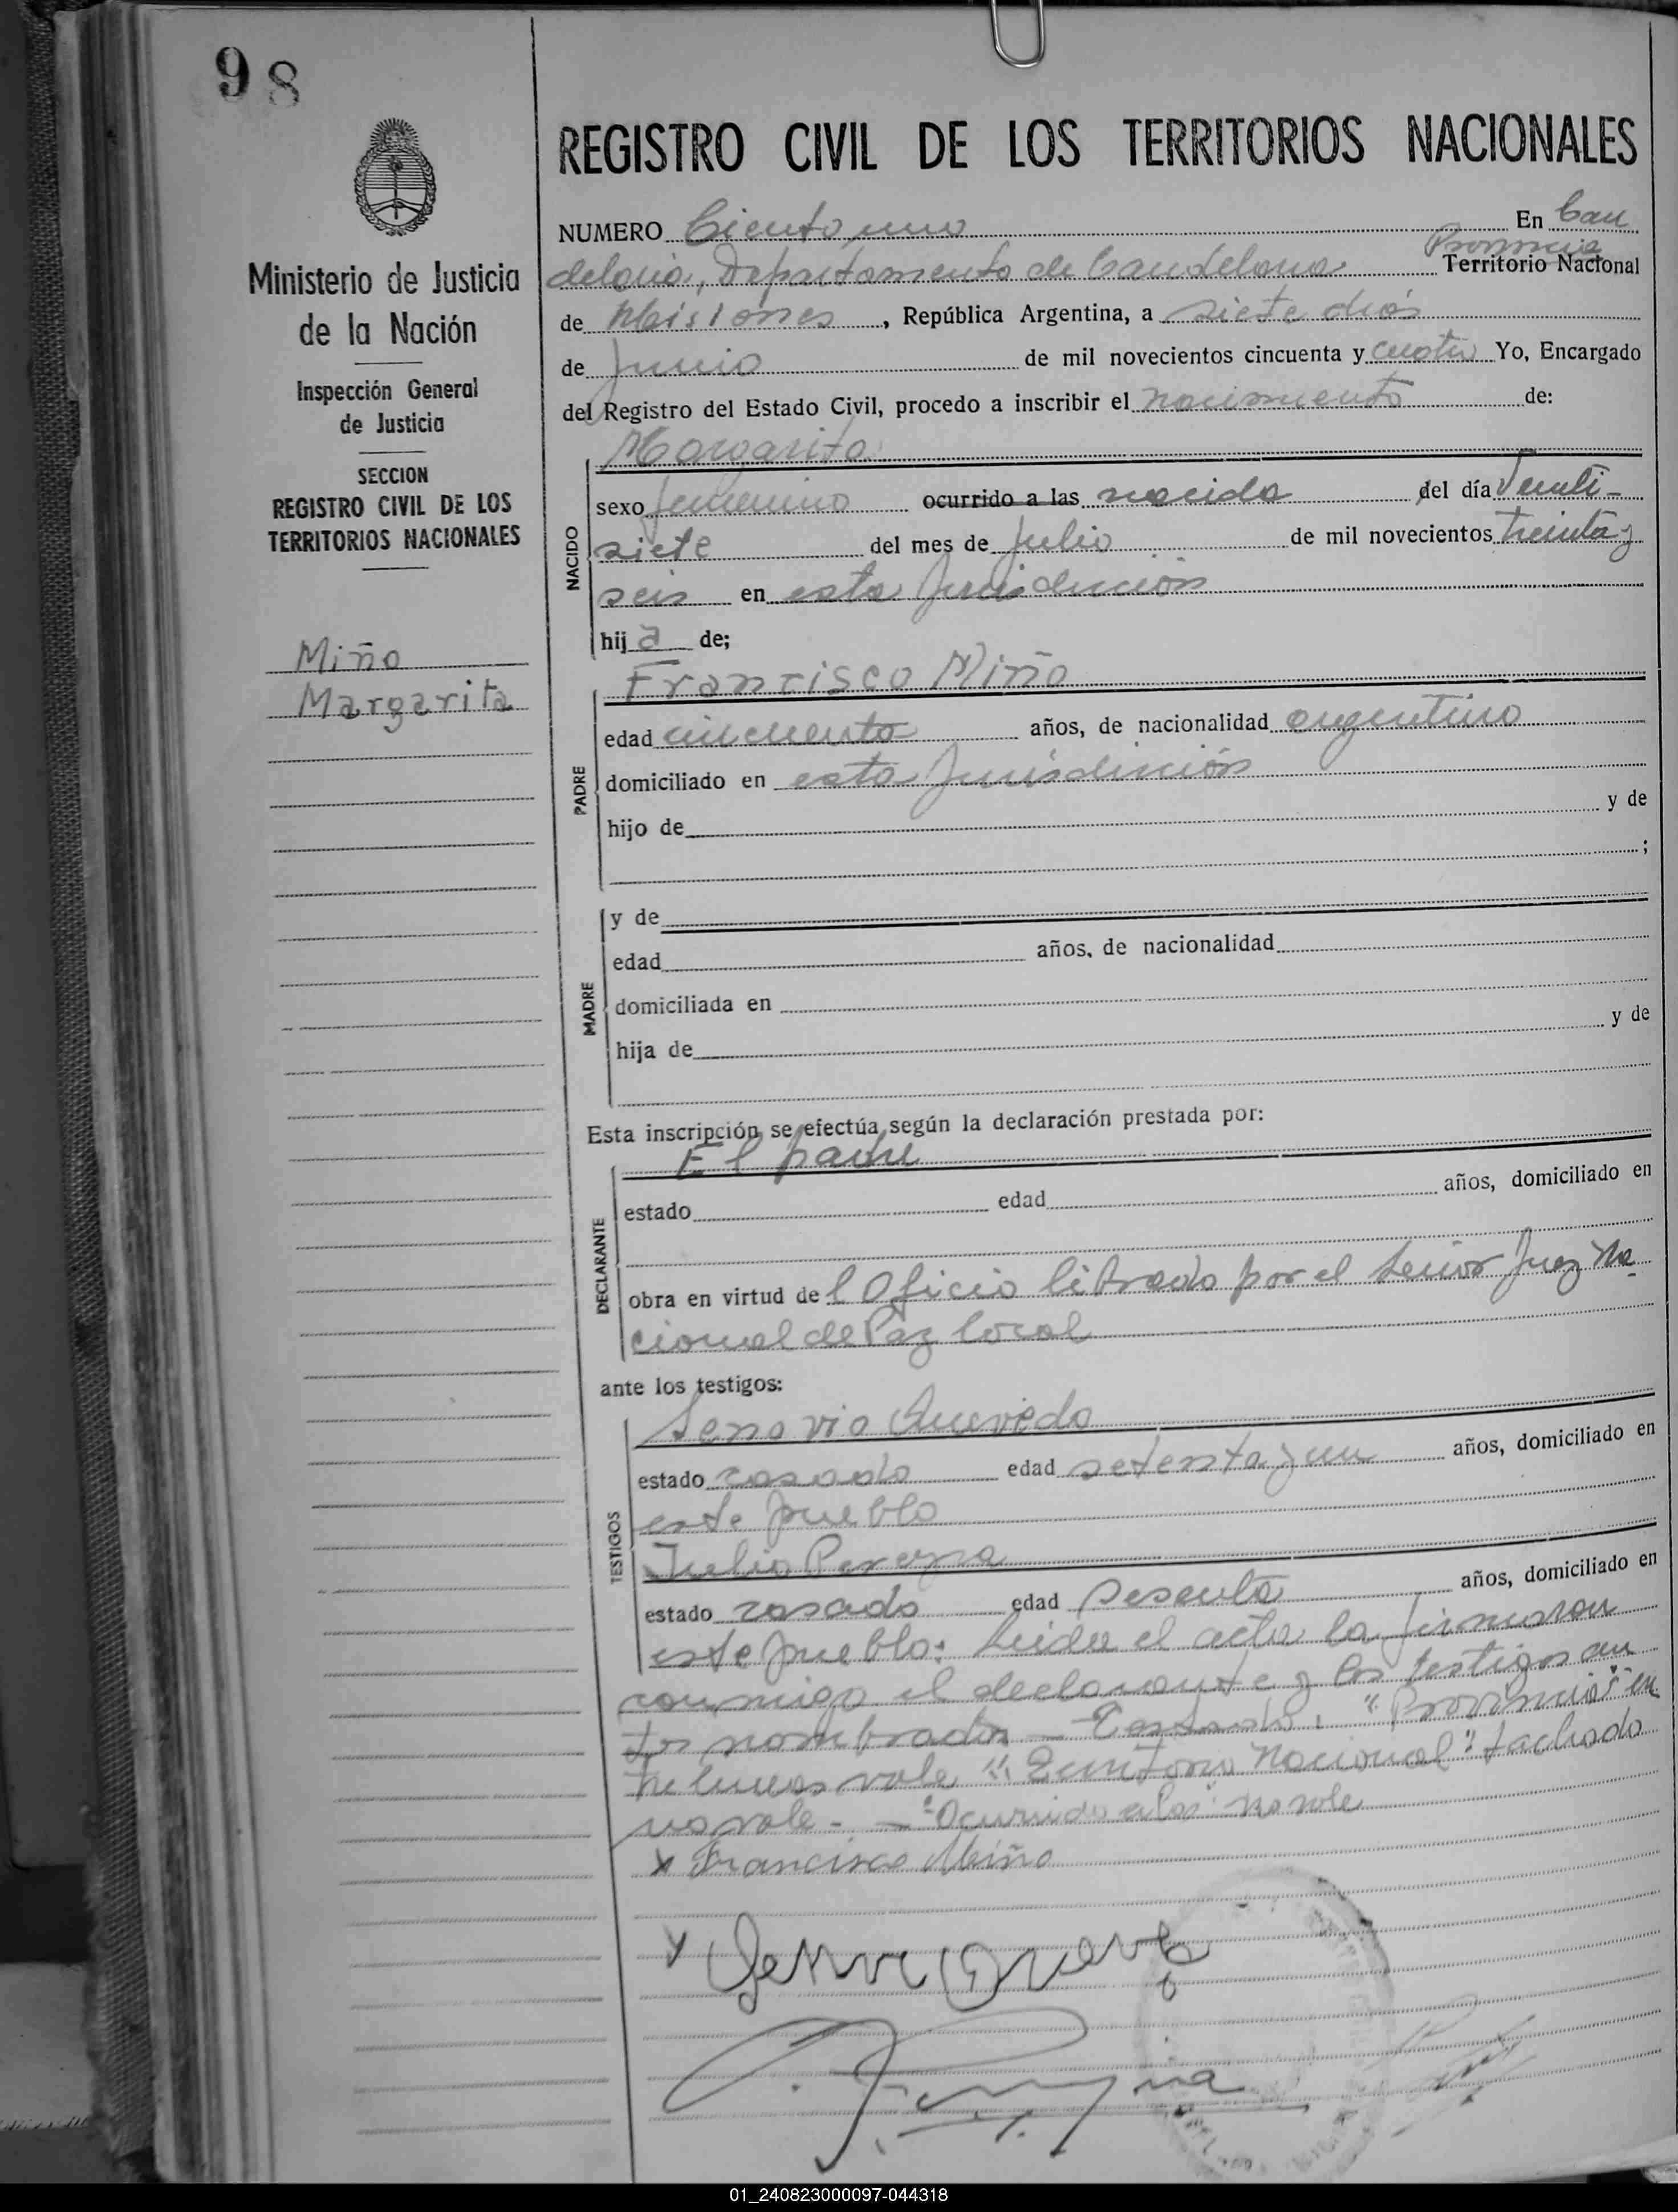 98
Ministerio de Justicia
de la Nación
Inspección General
de Justicia
SECCION
REGISTRO CIVIL DE LOS
TERRITORIOS NACIONALES
Miño
Margarita
REGISTRO CIVIL DE LOS TERRITORIOS NACIONALES
NUMERO Ciento uno En Can
Provincia
delaria, Departamento de Candelaria Territorio Nacional
de Misiones, República Argentina, a siete días
de Junio de mil novecientos cincuenta y cuatro Yo, Encargado
del Registro del Estado Civil, procedo a inscribir el nacimiento de:
Margarita
NACIDO
sexo femenino ocurrido a las nacida del día Veinti-
siete del mes de Julio de mil novecientos treinta y
seis en esta Jurisdicción
hija de;
PADRE
Francisco Miño
edad cincuenta años, de nacionalidad argentino
domiciliado en esta Jurisdicción
hijo de y de
;
MADRE
y de
edad años, de nacionalidad
domiciliada en
hija de y de
Esta inscripción se efectúa según la declaración prestada por:
DECLARANTE
El padre
estado edad años, domiciliado en
obra en virtud del Oficio librado por el Señor Juez Na
cional de Paz local
ante los testigos:
TESTIGOS
Quevedo
estado casado edad setenta y un años, domiciliado en
este pueblo
Julio Pereyra
estado casado edad sesenta años, domiciliado en
este pueblo. Leida el acta la firmaron
conmigo el declarante y los testigos an
tes nombrados - "Provincia" en
tre lineas vale "Territorio Nacional" tachado
no vale - - "Ocurrido a las" no vale
x Francisco Miño
01_240823000097-044318